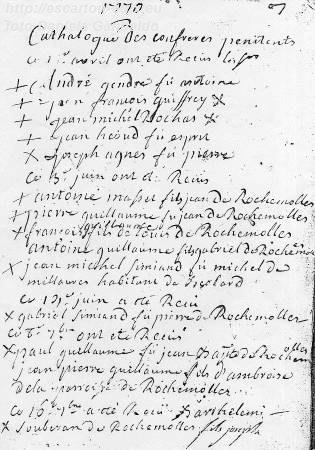 1770
Cathalogue Des confreres penitents
Ce 1er avril ont eté Reçus
+ André gendre fû antoine
+ jean françois guiffrey x
+ jean michel Rochas x
+ jean héoud fû esprit
x joseph agnes fû pierre
Ce 3e juin ont eté Reçus
+ antoine masset fils jean de Rochemolles
+ pierre guillaume fû jean de Rochemolles
+ françois guillaume fils de Louis de Rochemolles
antoine guillaume fils gabriel de Rochemolles
x jean michel simiand fû michel de
millaures habitant de
Ce juin a eté Reçu
x gabriel simiand fû pierre de Rochemolles
Ce 8e 7bre ont eté Reçus
x paul guillaume fû jean Bapte de Rochemolles
jean pierre guillaume fils d'ambroise
de la parroisse de Rochemolles
Ce 16e a eté Reçu Barthelemi
x souberan de Rochemolles fils joseph